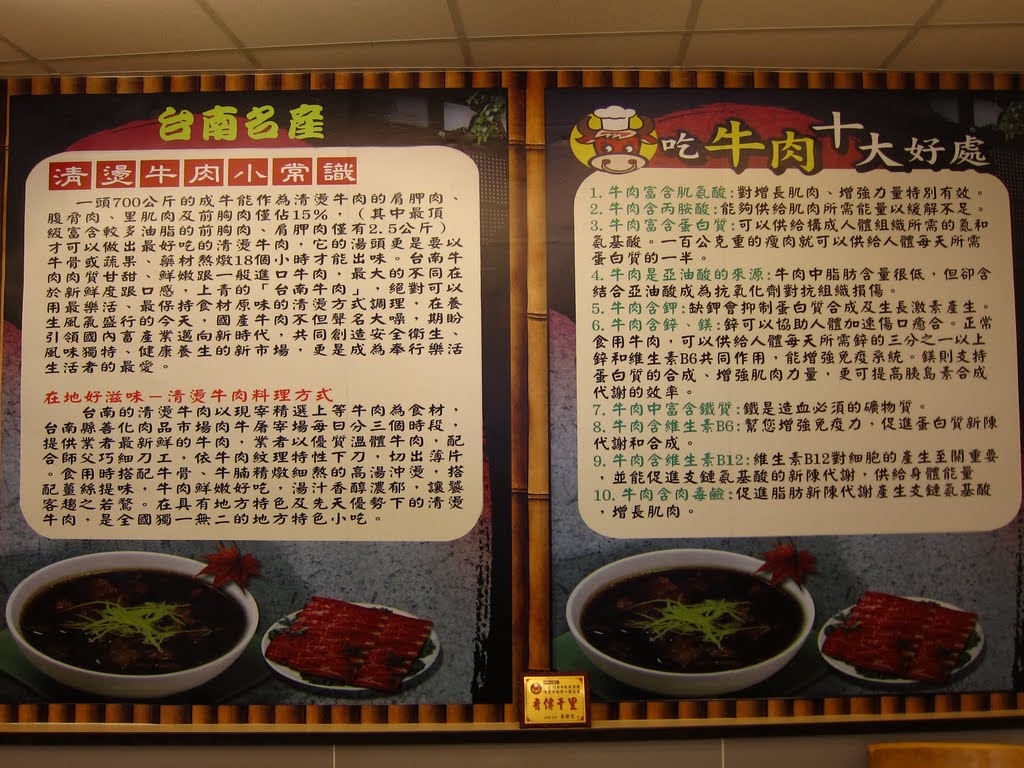 台南名產
清燙牛肉小常識
一頭700公斤的成牛能作為清燙牛肉的肩胛肉、
腹脅肉、里肌肉及前胸肉僅佔15%，（其中最頂
級富含較多油脂的前胸肉、肩胛肉僅有2.5公斤）
才可以做出最好吃的清燙牛肉，它的湯頭更是要以
牛骨或蔬果、藥材熬燉18個小時才能出味。台南牛
肉肉質甘甜、鮮嫩跟一般進口牛肉，最大的不同在
於新鮮度跟口感，上青的「台南牛肉」，絕對可以
用最樂活、最保持食材原味的清燙方式調理，在養
生風氣盛行的今天，國產牛肉不但聲名大噪，期盼
引領國內畜產業邁向新時代，共同創造安全衛生、
風味獨特、健康養生的新市場，更是成為奉行樂活
生活者的最愛。
在地好滋味－清燙牛肉料理方式
台南的清燙牛肉以現宰精選上等牛肉為食材，
台南縣善化肉品市場肉牛屠宰場每日分三個時段，
提供業者最新鮮的牛肉，業者以優質溫體牛肉，配
合師父巧細刀工，依牛肉紋理特性下刀，切出薄片
。食用時搭配牛骨、牛腩精燉細熬的高湯沖燙，搭
配薑絲提味，牛肉鮮嫩好吃，湯汁香醇濃郁，讓饕
客趨之若鶩。在具有地方特色及先天優勢下的清燙
牛肉，是全國獨一無二的地方特色小吃。
吃牛肉十大好處
1. 牛肉富含肌氨酸:對增長肌肉、增強力量特別有效。
2. 牛肉含丙胺酸:能夠供給肌肉所需能量以緩解不足。
3. 牛肉富含蛋白質:可以供給構成人體組織所需的氮和
氨基酸。一百公克重的瘦肉就可以供給人體每天所需
蛋白質的一半。
4. 牛肉是亞油酸的來源:牛肉中脂肪含量很低，但卻含
結合亞油酸成為抗氧化劑對抗組織損傷。
5. 牛肉含鉀:缺鉀會抑制蛋白質合成及生長激素產生。
6. 牛肉含鋅、鎂:鋅可以協助人體加速傷口癒合。正常
食用牛肉，可以供給人體每天所需鋅的三分之一以上
鋅和維生素B6共同作用，能增強免疫系統。鎂則支持
蛋白質的合成、增強肌肉力量，更可提高胰島素合成
代謝的效率。
7. 牛肉中富含鐵質:鐵是造血必須的礦物質。
8. 牛肉含維生素B6:幫您增強免疫力，促進蛋白質新陳
代謝和合成。
9. 牛肉含維生素B12:維生素B12對細胞的產生至關重要
，並能促進支鏈氨基酸的新陳代謝，供給身體能量
10. 牛肉含肉毒鹼:促進脂肪新陳代謝產生支鏈氨基酸
，增長肌肉。
香傳千里